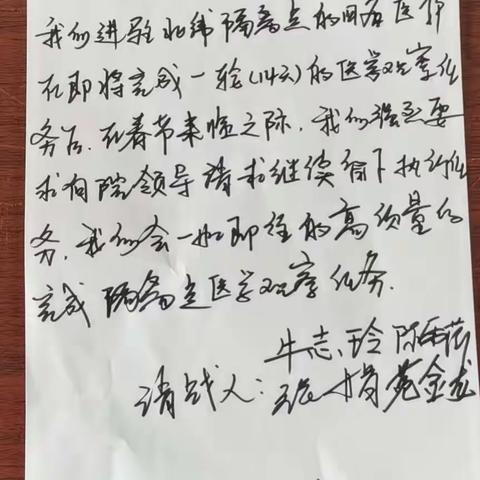 我们进驻北纬隔离点的四名医护
在即将完成一轮(14天)的医学观察任
务后,在春节来临之际,我们强烈要
求向院领导请求继续留下执行任
务,我们会一如即往的高质量的
完成隔离点医学观察任务.
牛志玲 陈
请战人: 张 苑金龙